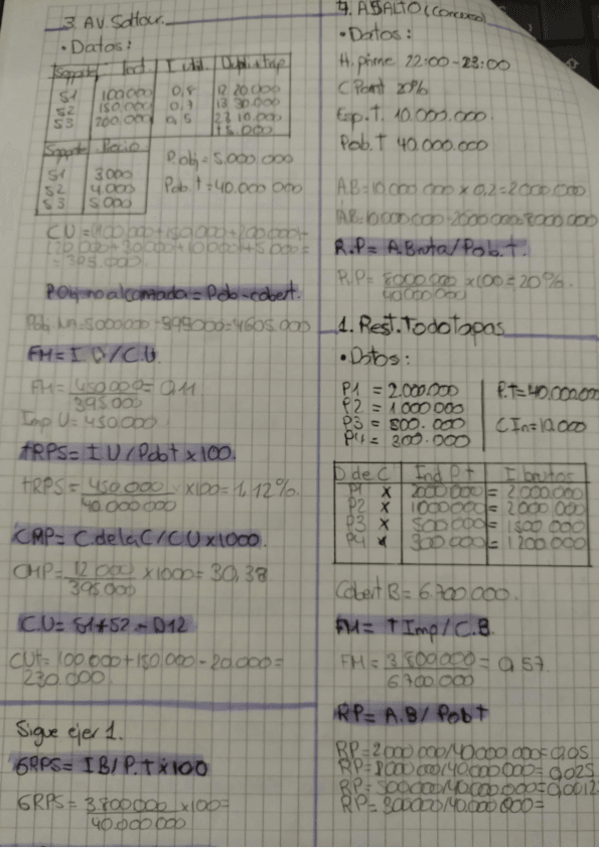 3. AV. Saltour.
• Datos:
Soporte Ind. I. util. Duplic+trip
S1 100.000 0,8 12 20.000
S2 150.000 0,7 13 30.000
S3 200.000 0,5 23 10.000
15.000
Soporte Precio
S1 3000
S2 4.000
S3 5000
P.obj = 5.000.000
Pob. t = 40.000.000
= 395.000.
PObj no alcanzada = Pob - cobert.
FH = I U / C.U.
FH = 450.000 = 0,11
395.000
Imp U = 450.000
tRPS = I.U / Pobt x 100.
tRPS = 450.000 x100 = 1,12%.
40.000.000
CMP = C. de la C / CU x 1000.
CMP = 12.000 x1000 = 30,38
395.000
C.U = S1 + S2 - D12
CUt = 100.000 + 150.000 - 20.000 =
230.000.
Sigue ejer 1.
GRPS = IB / P.t x 100
GRPS = 3800000 x100 =
40.000.000
4. ASALTO (Concurso)
• Datos:
H. prime 22:00 - 23:00
C Point 20%
Esp. T. 10.000.000.
Pob. T 40.000.000
AB = 10.000.000 x 0,2 = 2000.000
R.P = A. Bruta / Pob. t.
RP = 8000.000 x100 = 20%.
40.000.000
1. Rest. Todo Tapas
• Datos:
P1 = 2.000.000
P2 = 1000000
P3 = 500.000
P4 = 300.000
P.T = 40.000.000
C In = 12.000
D de C Ind P+ I. brutos
P1 x 2000000 = 2.000.000
P2 x 1000000 = 2000 000
P3 x 500000 = 1500 000
P4 x 300000 = 1200 000
Cobert B = 6.700.000.
FM = t Imp / C.B.
FM = 3800000 = 0,57.
6.700.000
RP = A.B / Pob t
RP = 2000 000/40000 000 = 0,05
RP = 1000 000/40.000.000 = 0,025
RP = 500000/40000 000 = 0,0012
RP = 300000/40.000.000 =